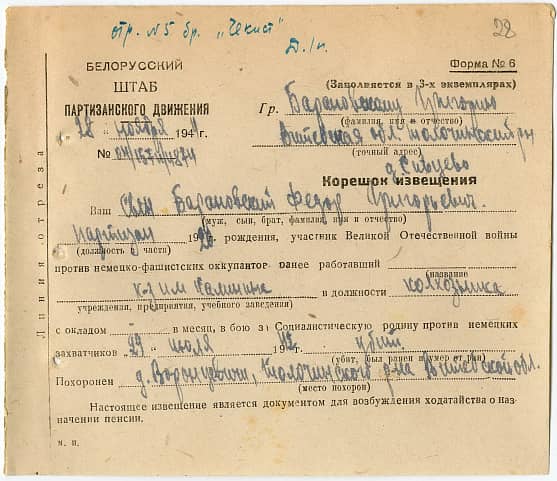 отр. №5 бр. „Чекист"
28
БЕЛОРУССКИЙ
ШТАБ
ПАРТИЗАНСКОГО ДВИЖЕНИЯ
„28" ноября 194
№
Форма № 6
(Заполняется в 3-х экземплярах)
Гр. Барановскому Григорию
(фамилия, имя и отчество)
Витебская обл. Толочинский р-н
(точный адрес)
д.
Корешок извещения
Ваш Сын Барановский Федор Григорьевич.
(муж, сын, брат, фамилия, имя и отчество)
партизан 19 рождения, участник Великой Отечественной войны
(должность в части)
против немецко-фашистских оккупантов ранее работавший
(название
к-з им Калинина в должности колхозника
учреждения, предприятия, учебного заведения)
с окладом в месяц, в бою за Социалистическую родину против немецких
захватчиков „29" июля 194 убит
(убит, был ранен и умер от ран)
Похоронен д. Толочинского р-на Витебской обл.
(место похорон)
Настоящее извещение является документом для возбуждения ходатайства о на-
значении пенсии.
м. п.
Линия отреза